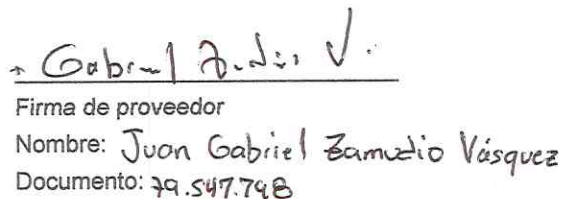 Gabriel Zamudio V.
Firma de proveedor
Nombre: Juan Gabriel Zamudio Vásquez
Documento: 79.547.798